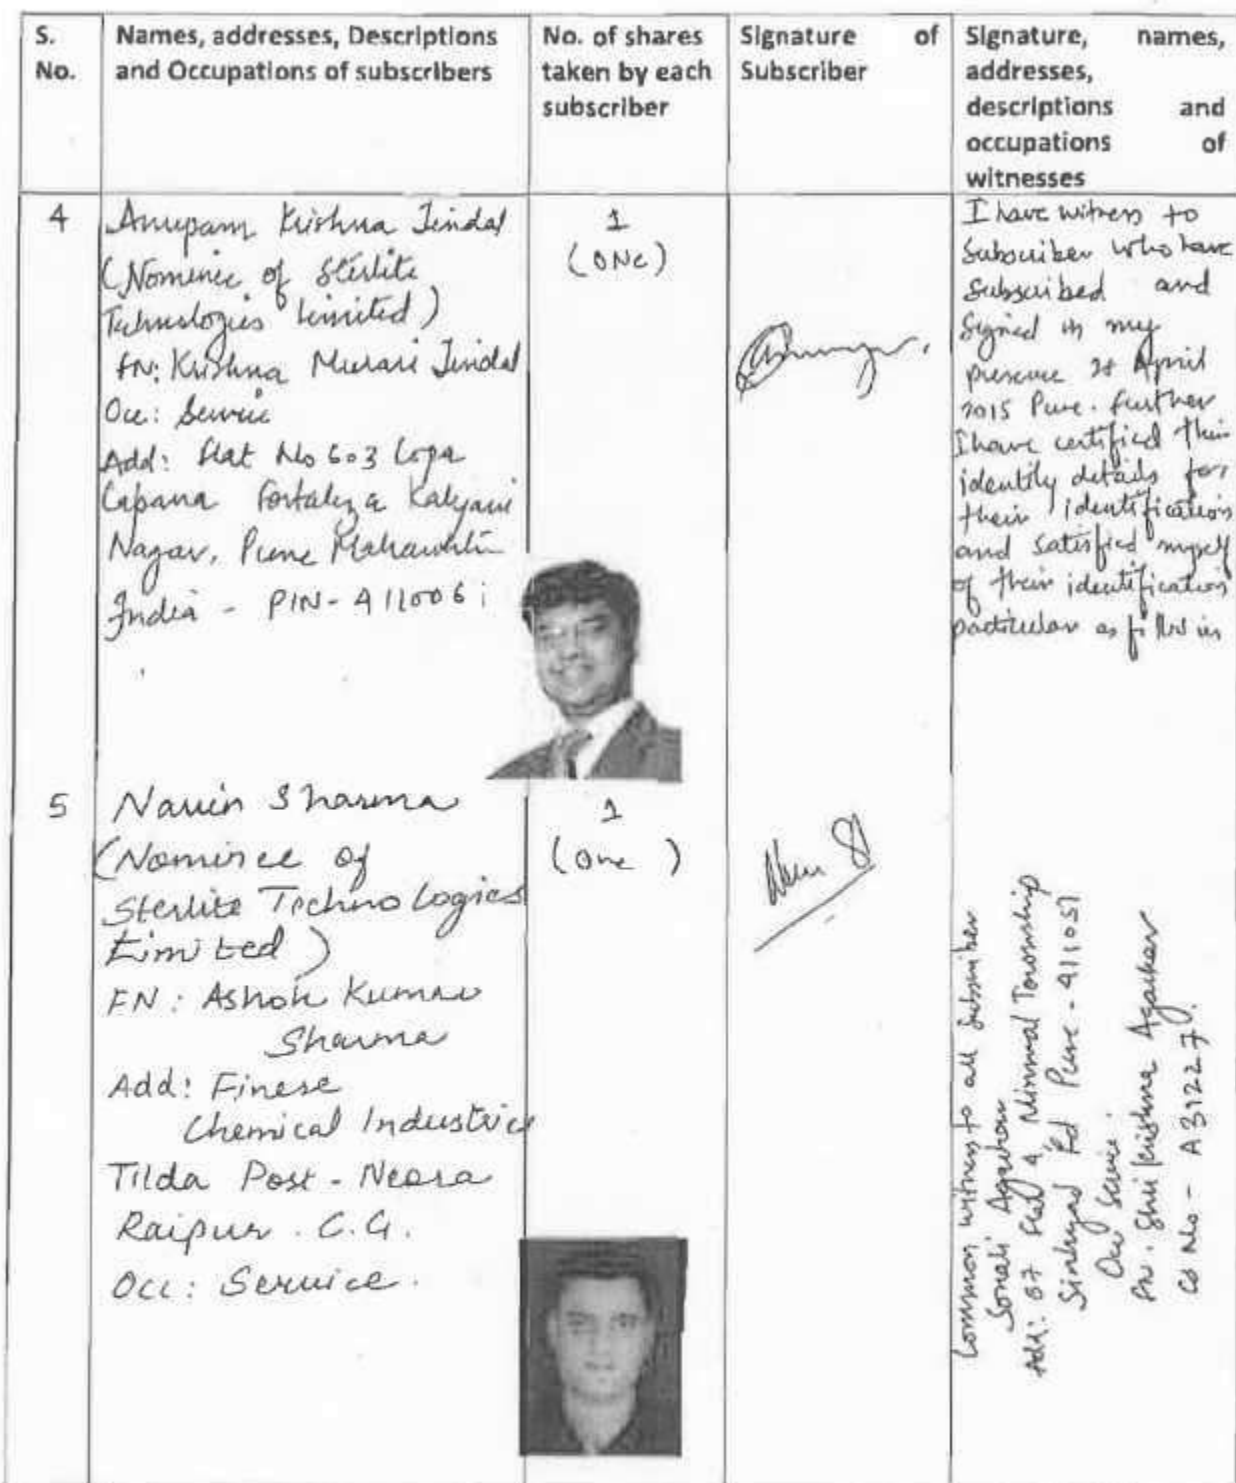 S. No.
Names, addresses, Descriptions
and Occupations of subscribers
No. of shares
taken by each
subscriber
Signature of
Subscriber
Signature, names,
addresses,
descriptions and
occupations of
witnesses
4
Anupam Krishna Jindal
(Nominee of Sterlite
Technologies Limited)
FN: Krishna Murari Jindal
Occ: Service
Add: Flat No 603 Lopa
Capana Fortaleza Kalyani
Nagar, Pune Maharashtra
India - PIN - 411006
1
(ONe)
I have witness to
Subscriber who have
Subscribed and
Signed in my
presence April
2015 Pune. further
I have certified their
identity details for
their identification
and satisfied myself
of their identification
particular as filled in
5
Navin Sharma
(Nominee of
Sterlite Technologies
Limited)
FN: Ashok Kumar
Sharma
Add: Finese
Chemical Industries
Tilda Post - Neora
Raipur. C.G.
Occ: Service.
1
(One)
Common witness to all Subscriber
Sonali Agarkar
Add: B7 Flat 4 Township
Sinhgad Rd Pune - 411051
Occ Service.
FN. Shri Krishna Agarkar
CS No - A31227